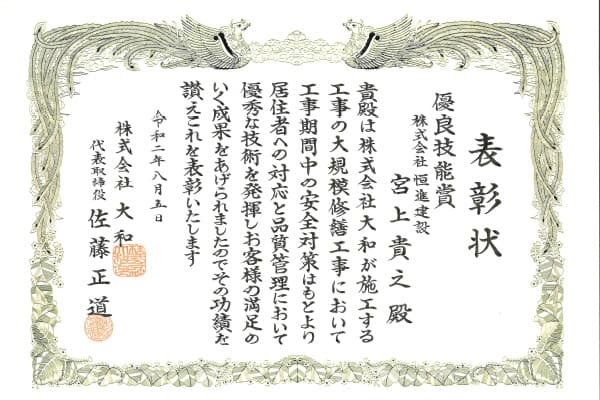 表彰状
優良技能賞
株式会社 恒進建設
宮上貴之 殿
貴殿は株式会社大和が施工する
工事の大規模修繕工事において
工事期間中の安全対策はもとより
居住者への対応と品質管理において
優秀な技術を発揮しお客様の満足の
いく成果をあげられましたのでその功績を
讃えこれを表彰いたします
令和二年八月五日
株式会社 大和
代表取締役 佐藤正道